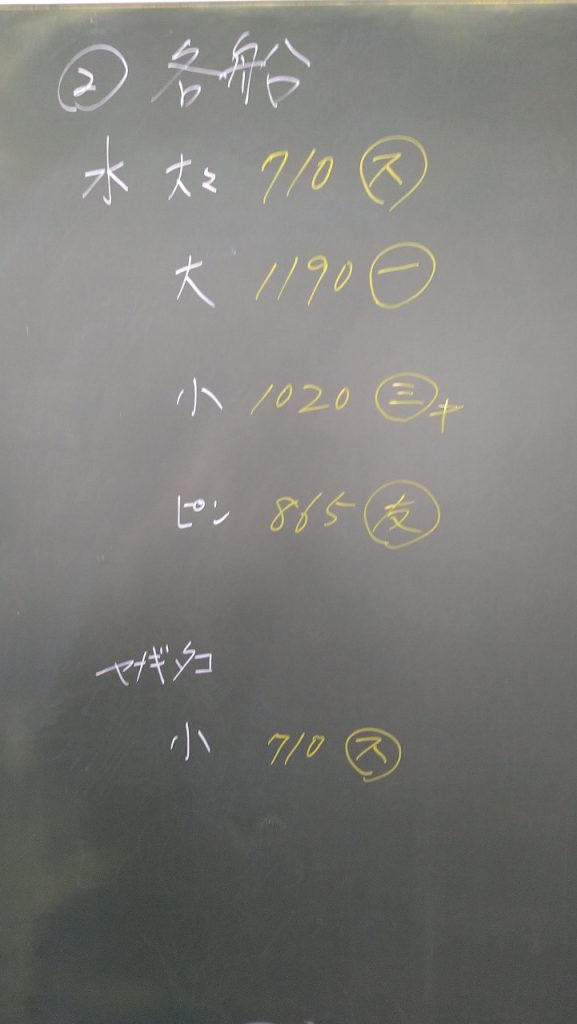 ② 各船
水 大々 710 ㋜
大 1190 ㊀
小 1020 ㊂キ
ピン 865 友
ヤナギダコ
小 710 ㋜